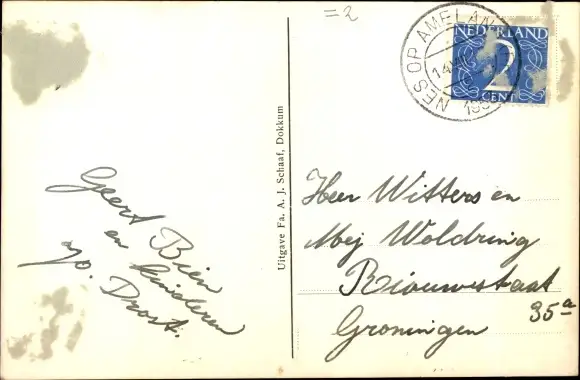 =2
NES OP AMELAND
14
195
NEDERLAND
2
CENT
Uitgave Fa. A. J. Schaaf, Dokkum
Geert Bien
en kinderen
Drost.
Heer Witters en
Mej Woldring
Riouwstraat
35a
Groningen